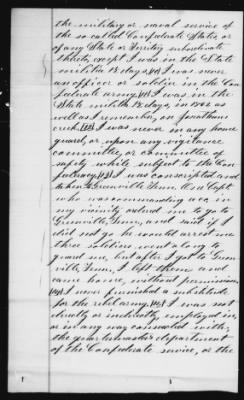 the military or naval service of
the so called Confederate States, or
of any State or Territory subordinate
thereto, except I was in the State
militia 12 days. I was never
an officer or soldier in the Con
federate army. I was in the
State militia 12 days, in 1862 as
well as I remember, on Jonathans
creek. I was never in any home
guard, or upon any vigilance
committee, or committee of
safety while subject to the Con
federacy. I was conscripted and
taken to Greenville, Tenn.
who was commanding
my vicinity ordered me to go to
Greenville, Tenn, and said if I
did not go he would arrest me
three soldiers went along to
guard me, but after I got to Green
ville, Tenn, I left them and
came home, without permission
I never furnished a substitute
for the rebel army. I was not
directly or indirectly employed in,
or in any way connected with,
the quartermaster's department
of the Confederate service, or the